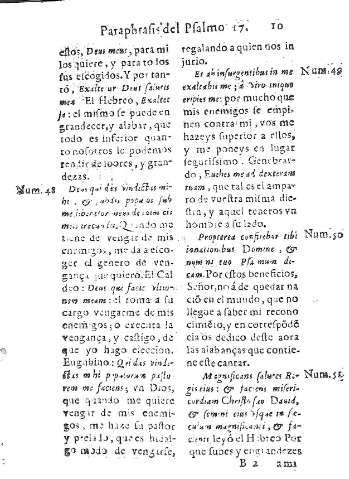 Paraphrasis del Psalmo 17. 10
ellos, Deus meus, para mi
los quiere, y para todos
sus escogidos. Y por tan-
to, Exaltetur Deus salutis
meæ El Hebreo, Exaltet-
se puede en
grandecer, y alabar, que
todo es inferior quan-
to nosotros le podemos
rendir de loores, y gran-
dezas.
Num. 48
Deus qui das vindictas mi-
hi, &
Quando me
tiene de vengar de mis
enemigos, me da a esco-
ger el genero de ven-
gança que quiero. El Cal
deo: Deus que facit vltio-
nem meam: el toma a su
cargo vengarme de mis
enemigos; o executa la
vengança, y castigo, de
que yo hago eleccion.
Eugubino: Qui das vindi-
ctas mihi
rem me faciens; va Dios,
que quando me quiere
vengar de mis enemi-
gos, me haze su pastor
y prelado, que es hidal-
go modo de vengarse,
regalando a quien nos in
jurio.
Num. 49
Et ab insurgentibus in me
exaltabis me; à viro iniquo
eripies me: por mucho que
mis enemigos se empi-
nen contra mi, vos me
hazeys superior a ellos,
y me poneys en lugar
segurissimo. Genebrar-
do, Euches me ad dexteram
tuam, que tal es el ampa-
ro de vuestra misma die-
stra, y aquel teneros vn
hombre a su lado.
Num. 50
Propterea confitebor tibi
in nationibus Domine, &
nomini tuo Psalmum di-
cam. Por estos beneficios,
Señor, no à de quedar na
ció en el mundo, que no
llegue a saber mi recono
cimiéto, y en correspóde
cia os dedico desde aora
las alabanças que contie-
ne este cantar.
Num. 51
Magnificans salutes Re-
gis eius; & faciens miseri-
cordiam Christo suo David,
& semini eius vsque in se-
culum &
leyó el Hebreo Por
que subes y engrandezes
B 2 ami